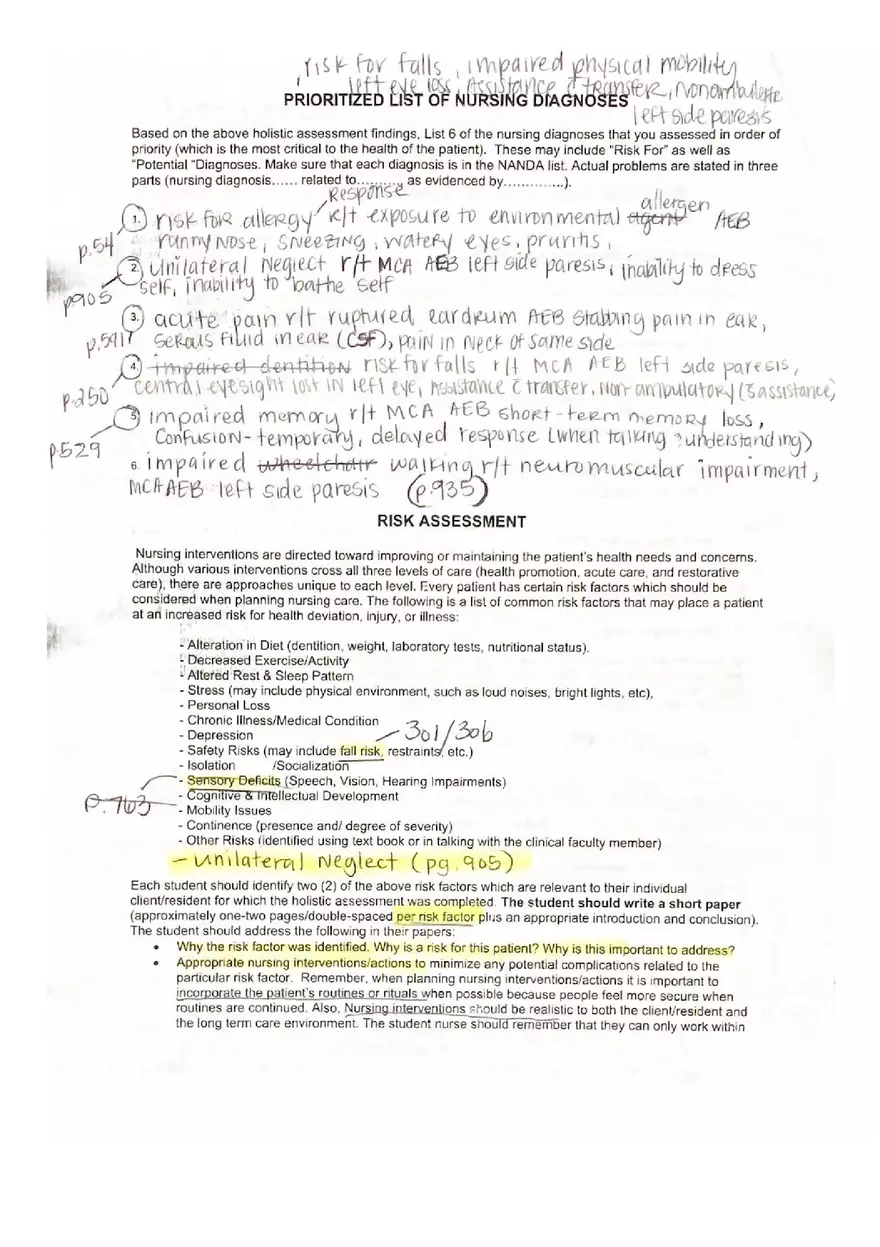 risk for falls, impaired physical mobility
left eye loss, Assistance c transfer, Nonambulate
left side paresis
PRIORITIZED LIST OF NURSING DIAGNOSES
Based on the above holistic assessment findings, List 6 of the nursing diagnoses that you assessed in order of
priority (which is the most critical to the health of the patient). These may include "Risk For" as well as
"Potential "Diagnoses. Make sure that each diagnosis is in the NANDA list. Actual problems are stated in three
parts (nursing diagnosis...... related to.........., as evidenced by..............).
Response
allergen
1. risk for allergy r/t exposure to environmental agent AEB
p.54 runny nose, sneezing, watery eyes, pruritis,
2. Unilateral Neglect r/t MCA AEB left side paresis, inability to dress
p905 self, inability to bathe self
3. acute pain r/t ruptured eardrum AEB stabbing pain in ear,
p.597 serous fluid in ear (CSF), pain in neck of same side
4. impaired dentition risk for falls r/t MCA AEB left side paresis,
p.250 central eyesight lost in left eye, Assistance c transfer, non-ambulatory (s assistance)
5. impaired memory r/t MCA AEB short-term memory loss,
p.529 Confusion-temporary, delayed response (when talking & understanding)
6. impaired wheelchair walking r/t neuromuscular impairment,
MCA AEB left side paresis (p.935)
RISK ASSESSMENT
Nursing interventions are directed toward improving or maintaining the patient's health needs and concerns.
Although various interventions cross all three levels of care (health promotion, acute care, and restorative
care), there are approaches unique to each level. Every patient has certain risk factors which should be
considered when planning nursing care. The following is a list of common risk factors that may place a patient
at an increased risk for health deviation, injury, or illness:
- Alteration in Diet (dentition, weight, laboratory tests, nutritional status).
- Decreased Exercise/Activity
- Altered Rest & Sleep Pattern
- Stress (may include physical environment, such as loud noises, bright lights, etc),
- Personal Loss
- Chronic Illness/Medical Condition
- Depression 301/306
- Safety Risks (may include fall risk, restraints, etc.)
- Isolation /Socialization
- Sensory Deficits (Speech, Vision, Hearing Impairments)
p.763 - Cognitive & Intellectual Development
- Mobility Issues
- Continence (presence and/ degree of severity)
- Other Risks (identified using text book or in talking with the clinical faculty member)
- Unilateral Neglect (pg.905)
Each student should identify two (2) of the above risk factors which are relevant to their individual
client/resident for which the holistic assessment was completed. The student should write a short paper
(approximately one-two pages/double-spaced per risk factor plus an appropriate introduction and conclusion).
The student should address the following in their papers:
• Why the risk factor was identified. Why is a risk for this patient? Why is this important to address?
• Appropriate nursing interventions/actions to minimize any potential complications related to the
particular risk factor. Remember, when planning nursing interventions/actions it is important to
incorporate the patient's routines or rituals when possible because people feel more secure when
routines are continued. Also, Nursing interventions should be realistic to both the client/resident and
the long term care environment. The student nurse should remember that they can only work within